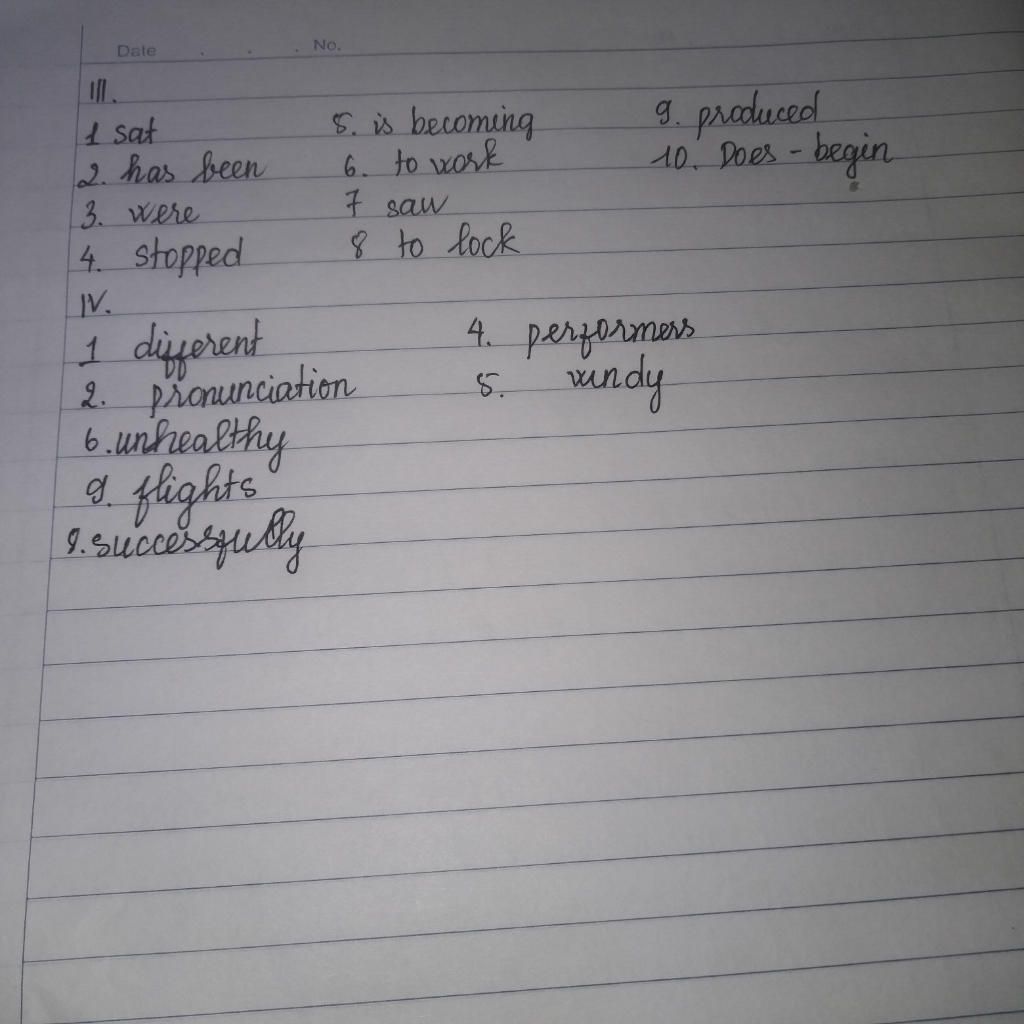 Date . . . No.
III.
1 sat 5. is becoming 9. produced
2. has been 6. to work 10. Does - begin
3. were 7 saw
4. stopped 8 to lock
IV.
1 different 4. performers
2. pronunciation 5. windy
6. unhealthy
9. flights
9. successfully